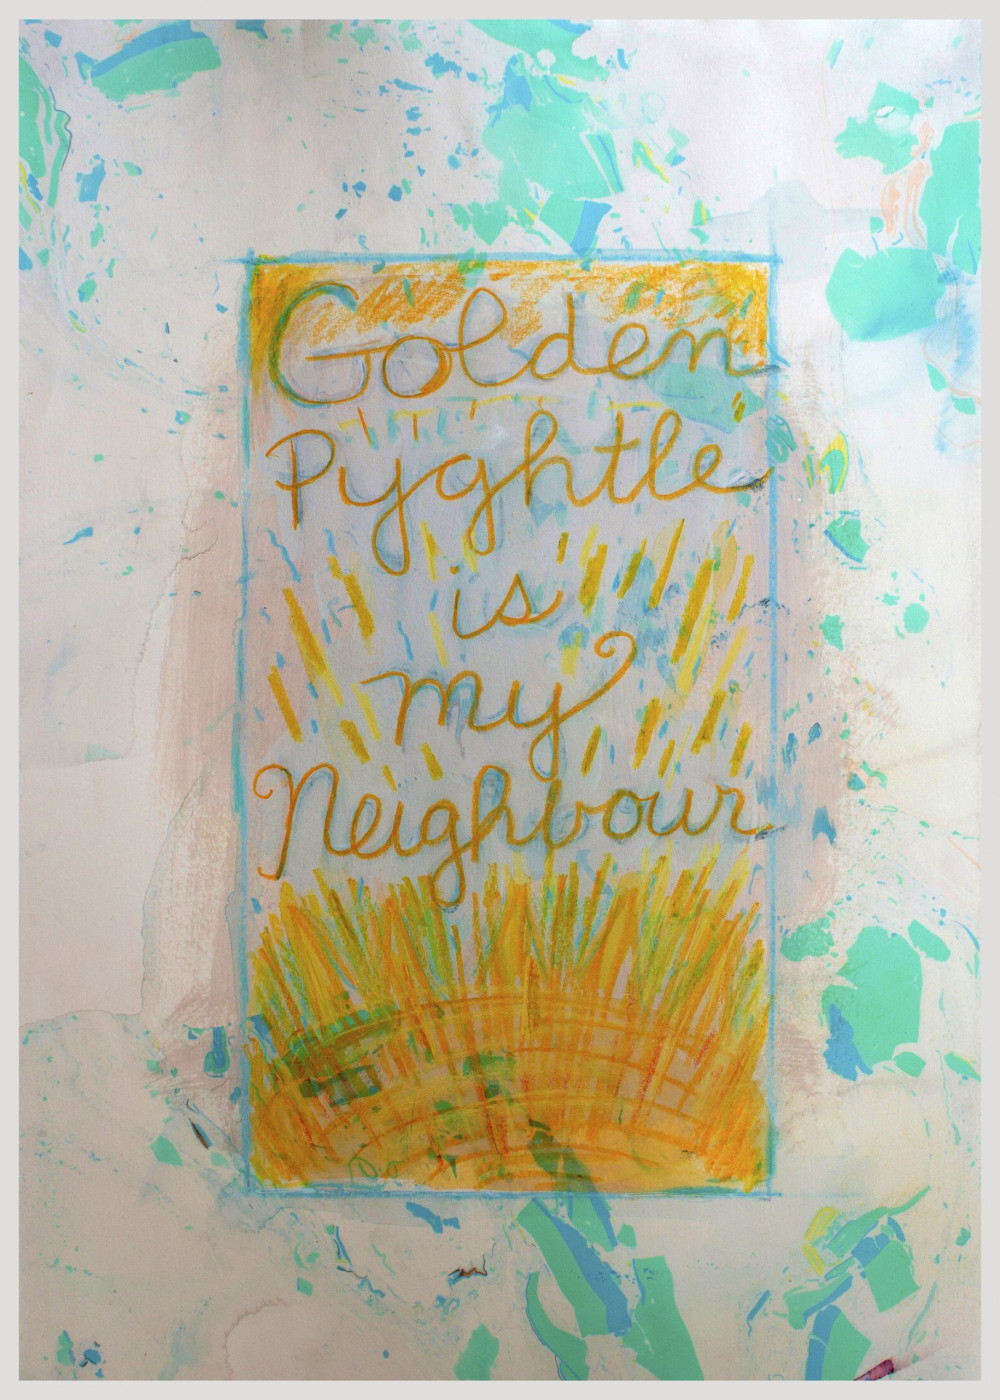 Golden
Pyghtle
is
my
Neighbour